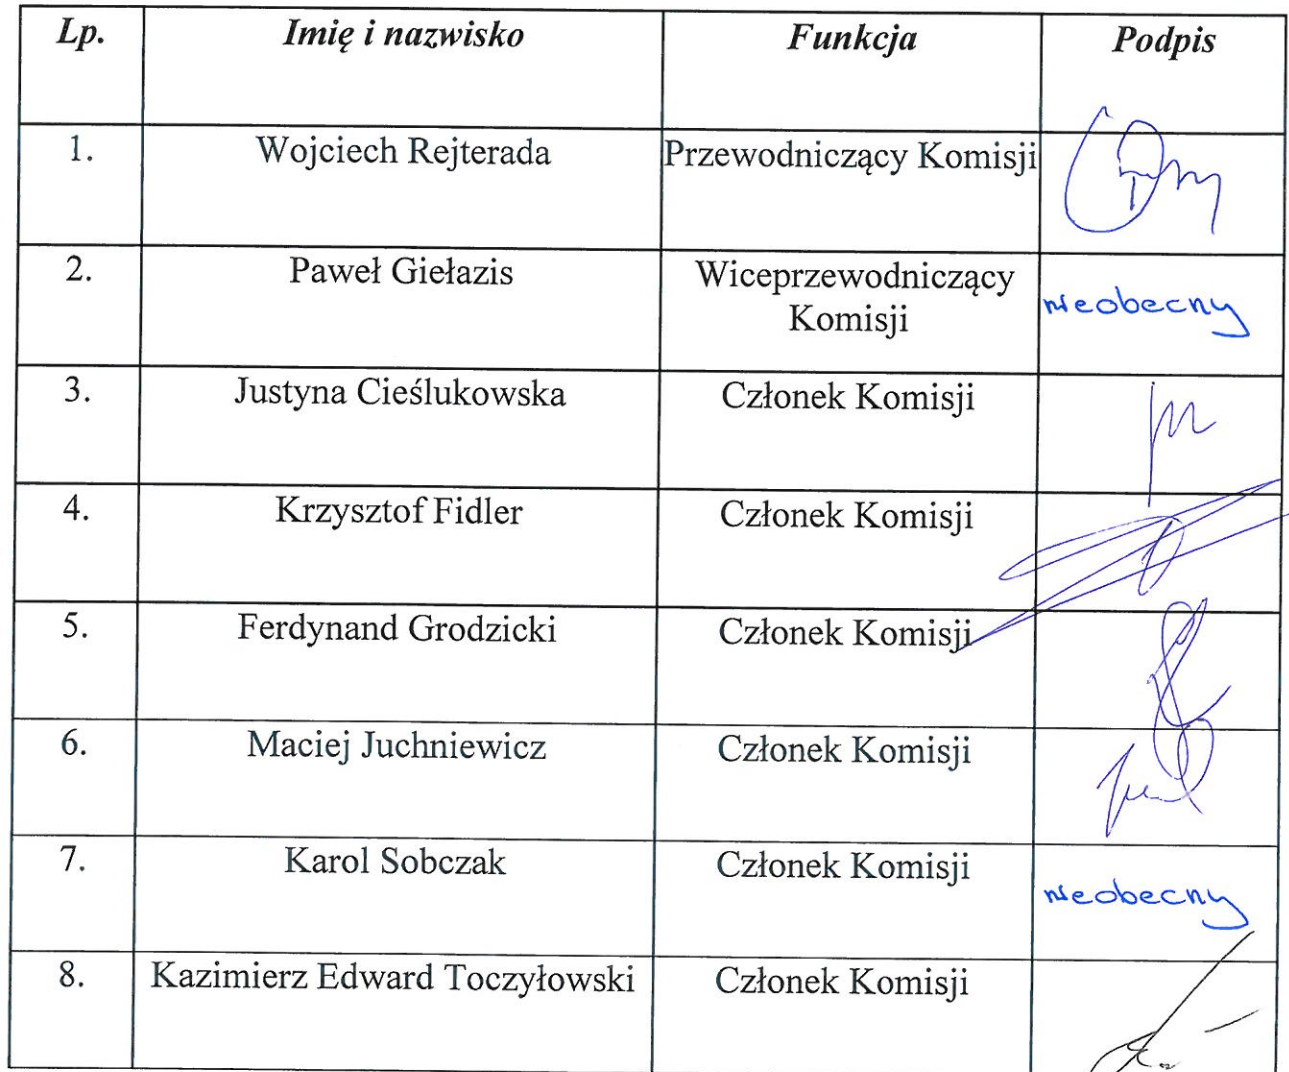 Lp. Imię i nazwisko Funkcja Podpis
1. Wojciech Rejterada Przewodniczący Komisji
2. Paweł Giełazis Wiceprzewodniczący
Komisji nieobecny
3. Justyna Cieślukowska Członek Komisji
4. Krzysztof Fidler Członek Komisji
5. Ferdynand Grodzicki Członek Komisji
6. Maciej Juchniewicz Członek Komisji
7. Karol Sobczak Członek Komisji nieobecny
8. Kazimierz Edward Toczyłowski Członek Komisji